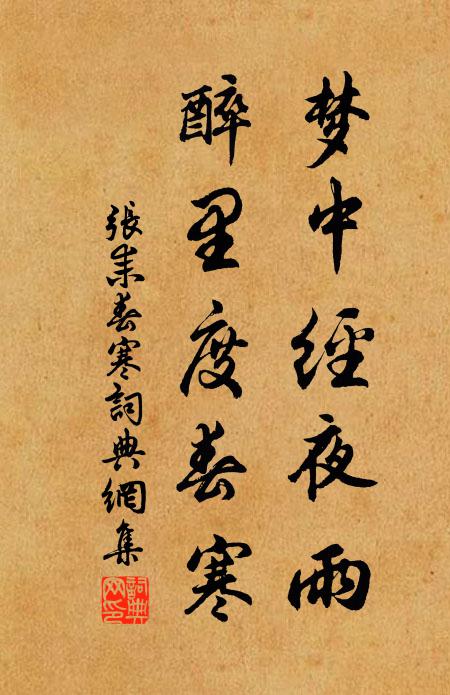 梦中經夜雨
醉里度春寒
張耒春寒詞典網集
詞典网印